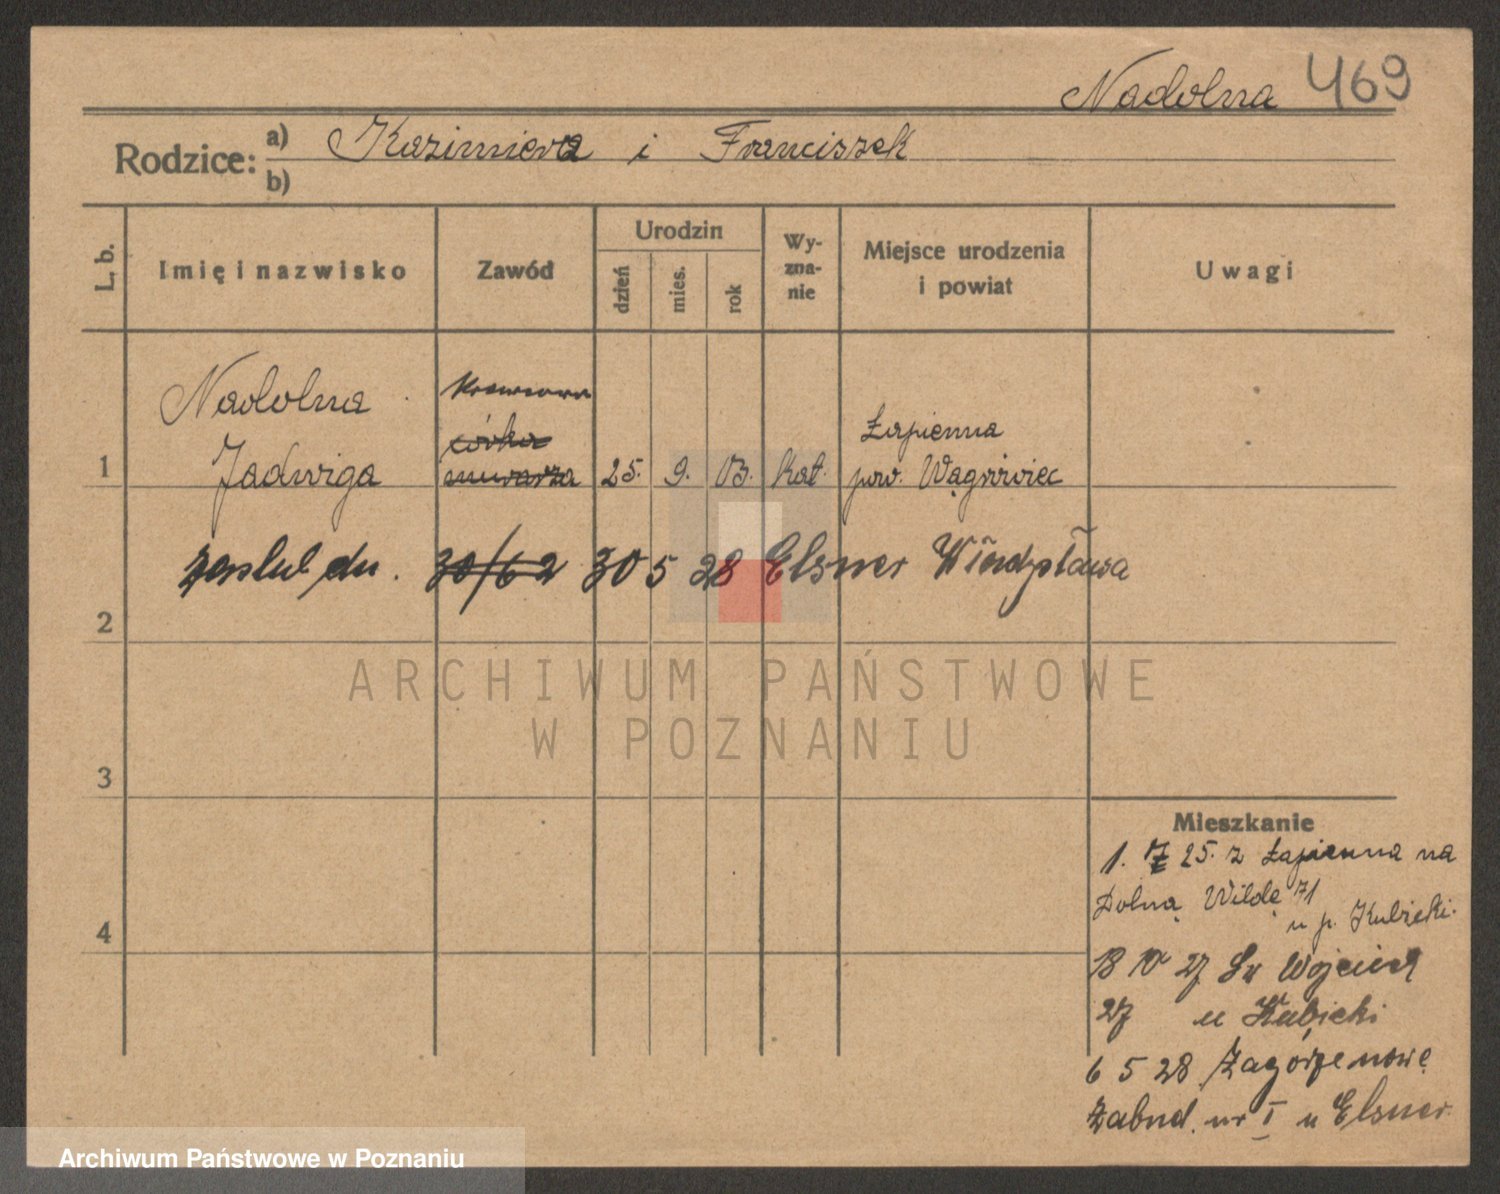 Nadolna 469
Rodzice: a) Kazimiera i Franciszek
b)
L. b. Imię i nazwisko Zawód Urodzin dzień mies. rok Wy-zna-nie Miejsce urodzenia i powiat Uwagi
Nadolna Krawcowa
córka Łapienna
1 Jadwiga murarza 25. 9. 03. kat. pow. Wągrówiec
zaślub dn. 30/62 30 5 28 Elsner Władysława
2
ARCHIWUM PAŃSTWOWE
W POZNANIU
3
Mieszkanie
1. 7 25. z Łapienna na
Dolną Wildę 71
u p. Kubicki.
4
13 10 27 Św Wojciech
27 u Kubicki
6 5 28 Zagórze nowe
Zabud. nr I u Elsner
Archiwum Państwowe w Poznaniu